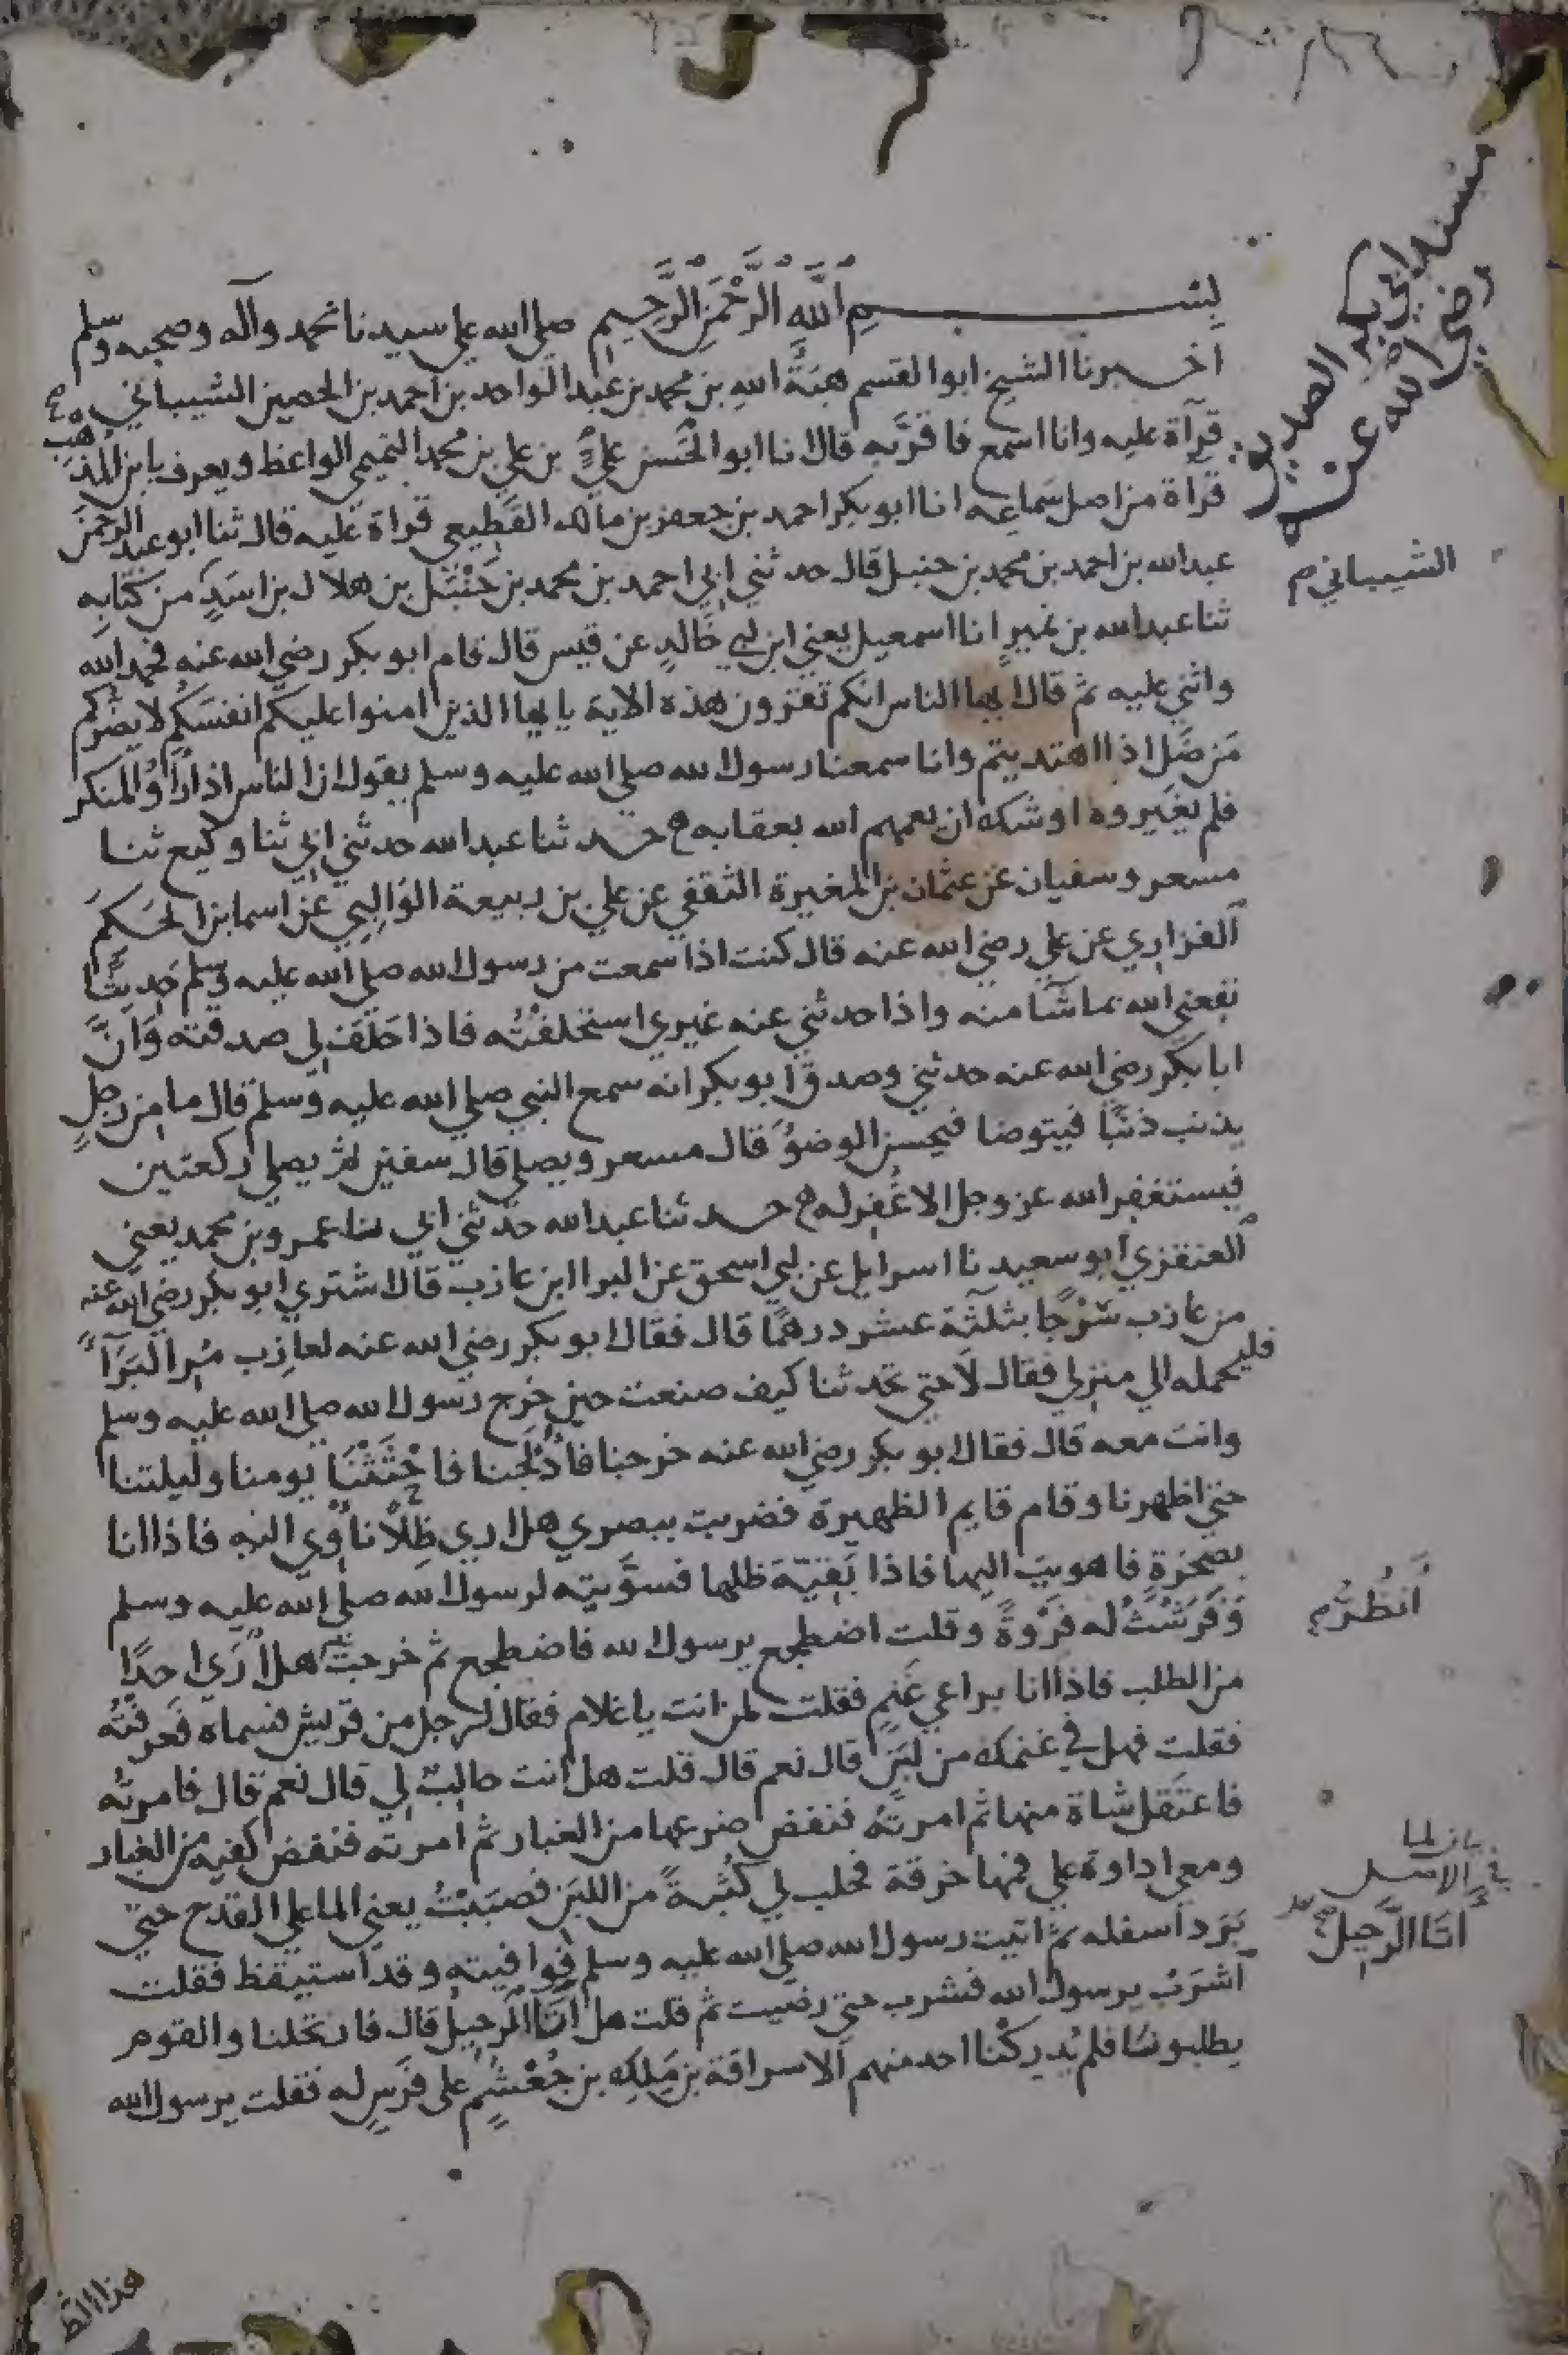 مسند ابي بكر الصديق
رضي الله عنه
بسم الله الرحمن الرحيم صلى الله على سيدنا محمد وآله وصحبه وسلم
اخبرنا الشيخ ابو القسم هبة الله بن محمد بن عبد الواحد بن احمد بن الحصين الشيباني
قرآة عليه وانا اسمع فاقر به قال انا ابو الحسن علي بن علي بن محمد التميمي الواعظ ويعرف بابن المذهب
قرآة من اصل سماعه انا ابو بكر احمد بن جعفر بن مالك القطيعي قراة عليه قال ثنا ابو عبد الرحمن
عبد الله بن احمد بن محمد بن حنبل قال حدثني ابي احمد بن محمد بن حنبل بن هلال بن اسد من كتابه
الشيباني
ثنا عبد الله بن نمير انا اسمعيل يعني ابن ابي خالد عن قيس قال قام ابو بكر رضي الله عنه فحمد الله
واثنى عليه ثم قال ايها الناس انكم تقرون هذه الاية يا ايها الذين امنوا عليكم انفسكم لا يضركم
من ضل اذا اهتديتم وانا سمعنا رسول الله صلى الله عليه وسلم يقول ان الناس اذا راوا المنكر
فلم يغيروه اوشك ان يعمهم الله بعقابه حدثنا عبد الله حدثني ابي ثنا وكيع ثنا
مسعر وسفيان عن عثمان بن المغيرة الثقفي عن علي بن ربيعة الوالبي عن اسما بن الحكم
الفزاري عن علي رضي الله عنه قال كنت اذا سمعت من رسول الله صلى الله عليه وسلم حديثا
نفعني الله بما شا منه واذا حدثني عنه غيري استحلفته فاذا حلف لي صدقته وان
ابا بكر رضي الله عنه حدثني وصدق ابو بكر انه سمع النبي صلى الله عليه وسلم قال ما من رجل
يذنب ذنبا فيتوضا فيحسن الوضو قال مسعر ويصلي قال سفين ثم يصلي ركعتين
فيستغفر الله عز وجل الا غفر له حدثنا عبد الله حدثني ابي ثنا عمرو بن محمد يعني
العنقزي ابو سعيد نا اسرايل عن ابي اسحق عن البرا ابن عازب قال اشترى ابو بكر رضي الله عنه
من عازب سرجا بثلثة عشر درهما قال فقال ابو بكر رضي الله عنه لعازب مر البرآ
فليحمله الى منزلي فقال لا حتى تحدثنا كيف صنعت حين خرج رسول الله صلى الله عليه وسلم
وانت معه قال فقال ابو بكر رضي الله عنه خرجنا فادلجنا فاحثثنا يومنا وليلتنا
حتى اظهرنا وقام قايم الظهيرة فضربت ببصري هل ارى ظلا ناوي اليه فاذا انا
بصخرة فاهويت اليها فاذا بقية ظلها فسويته لرسول الله صلى الله عليه وسلم
وفرشت له فروة وقلت اضطجع يرسول الله فاضطجع ثم خرجت هل ارى احدا
انظر
من الطلب فاذا انا براعي غنم فقلت لمن انت يا غلام فقال لرجل من قريش فسماه فعرفته
فقلت فهل في غنمك من لبن قال نعم قال قلت هل انت حالب لي قال نعم قال فامرته
فاعتقل شاة منها ثم امرته فنفض ضرعها من الغبار ثم امرته فنفض كفيه من الغبار
ومعي اداوة على فمها خرقة فحلب لي كثبة من اللبن فصببت يعني الما على القدح حتى
برد اسفله ثم اتيت رسول الله صلى الله عليه وسلم فوافيته وقد استيقظ فقلت
في الاصل
انا الرحيل
اشرب يرسول الله فشرب حتى رضيت ثم قلت هل انا الرحيل قال فارتحلنا والقوم
يطلبونا فلم يدركنا احد منهم الا سراقة بن ملك بن جعشم على فرس له فقلت يرسول الله
هذا الط